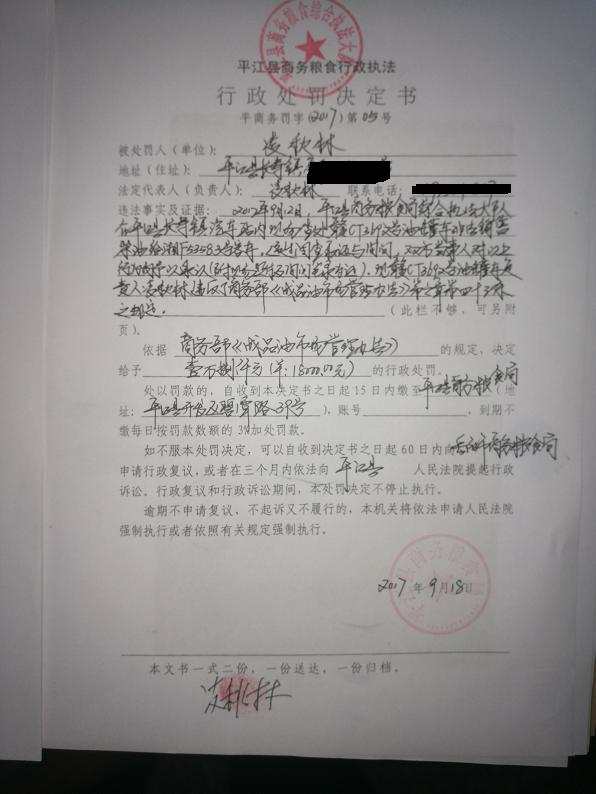 平江县商务粮食行政执法
行政处罚决定书
平商务罚字(2017)第05号
被处罚人(单位): 凌秋林
地址(住址): 平江县长寿镇
法定代表人(负责人): 凌秋林 联系电话:
违法事实及证据: 2017年9月12日,平江县商务粮食局综合执法大队
在平江县长寿镇汽车站内
柴油给湘F53583号货车,经过调查取证与询问,双方当事人对以上
违反了商务部《成品油市场管理办法》第 章第四十三条
之规定。 (此栏不够,可另附
页)。
依据 商务部《成品油市场管理办法》 的规定,决定
给予 壹万捌仟元(¥:18000.00元) 的行政处罚。
处以罚款的,自收到本决定书之日起15日内缴至 平江县商务粮食局 (地
址: 平江县开发区碧潭路39号 ),账号 ,到期不
缴每日按罚款数额的3%加处罚款。
如不服本处罚决定,可以自收到决定书之日起60日内向 岳阳市商务粮食局
申请行政复议,或者在三个月内依法向 平江县 人民法院提起行政
诉讼。行政复议和行政诉讼期间,本处罚决定不停止执行。
逾期不申请复议、不起诉又不履行的,本机关将依法申请人民法院
强制执行或者依照有关规定强制执行。
平江县商务粮食局
2017年9月18日
本文书一式二份,一份送达,一份归档。